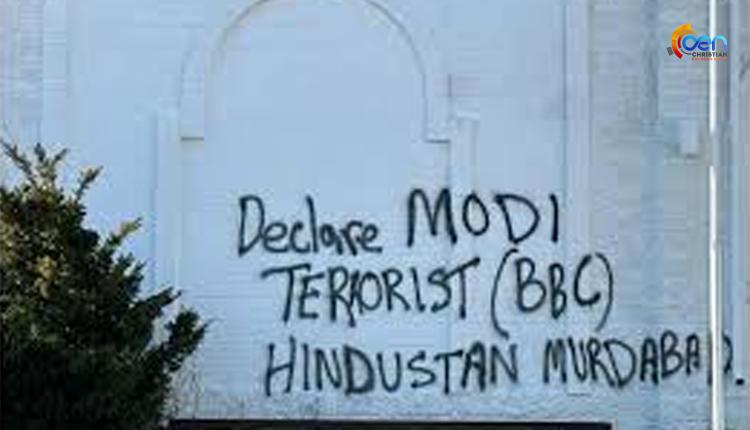 CEN
CHRISTIAN
Declare MODI
TERRORIST (BBC)
HINDUSTAN MURDABAD.